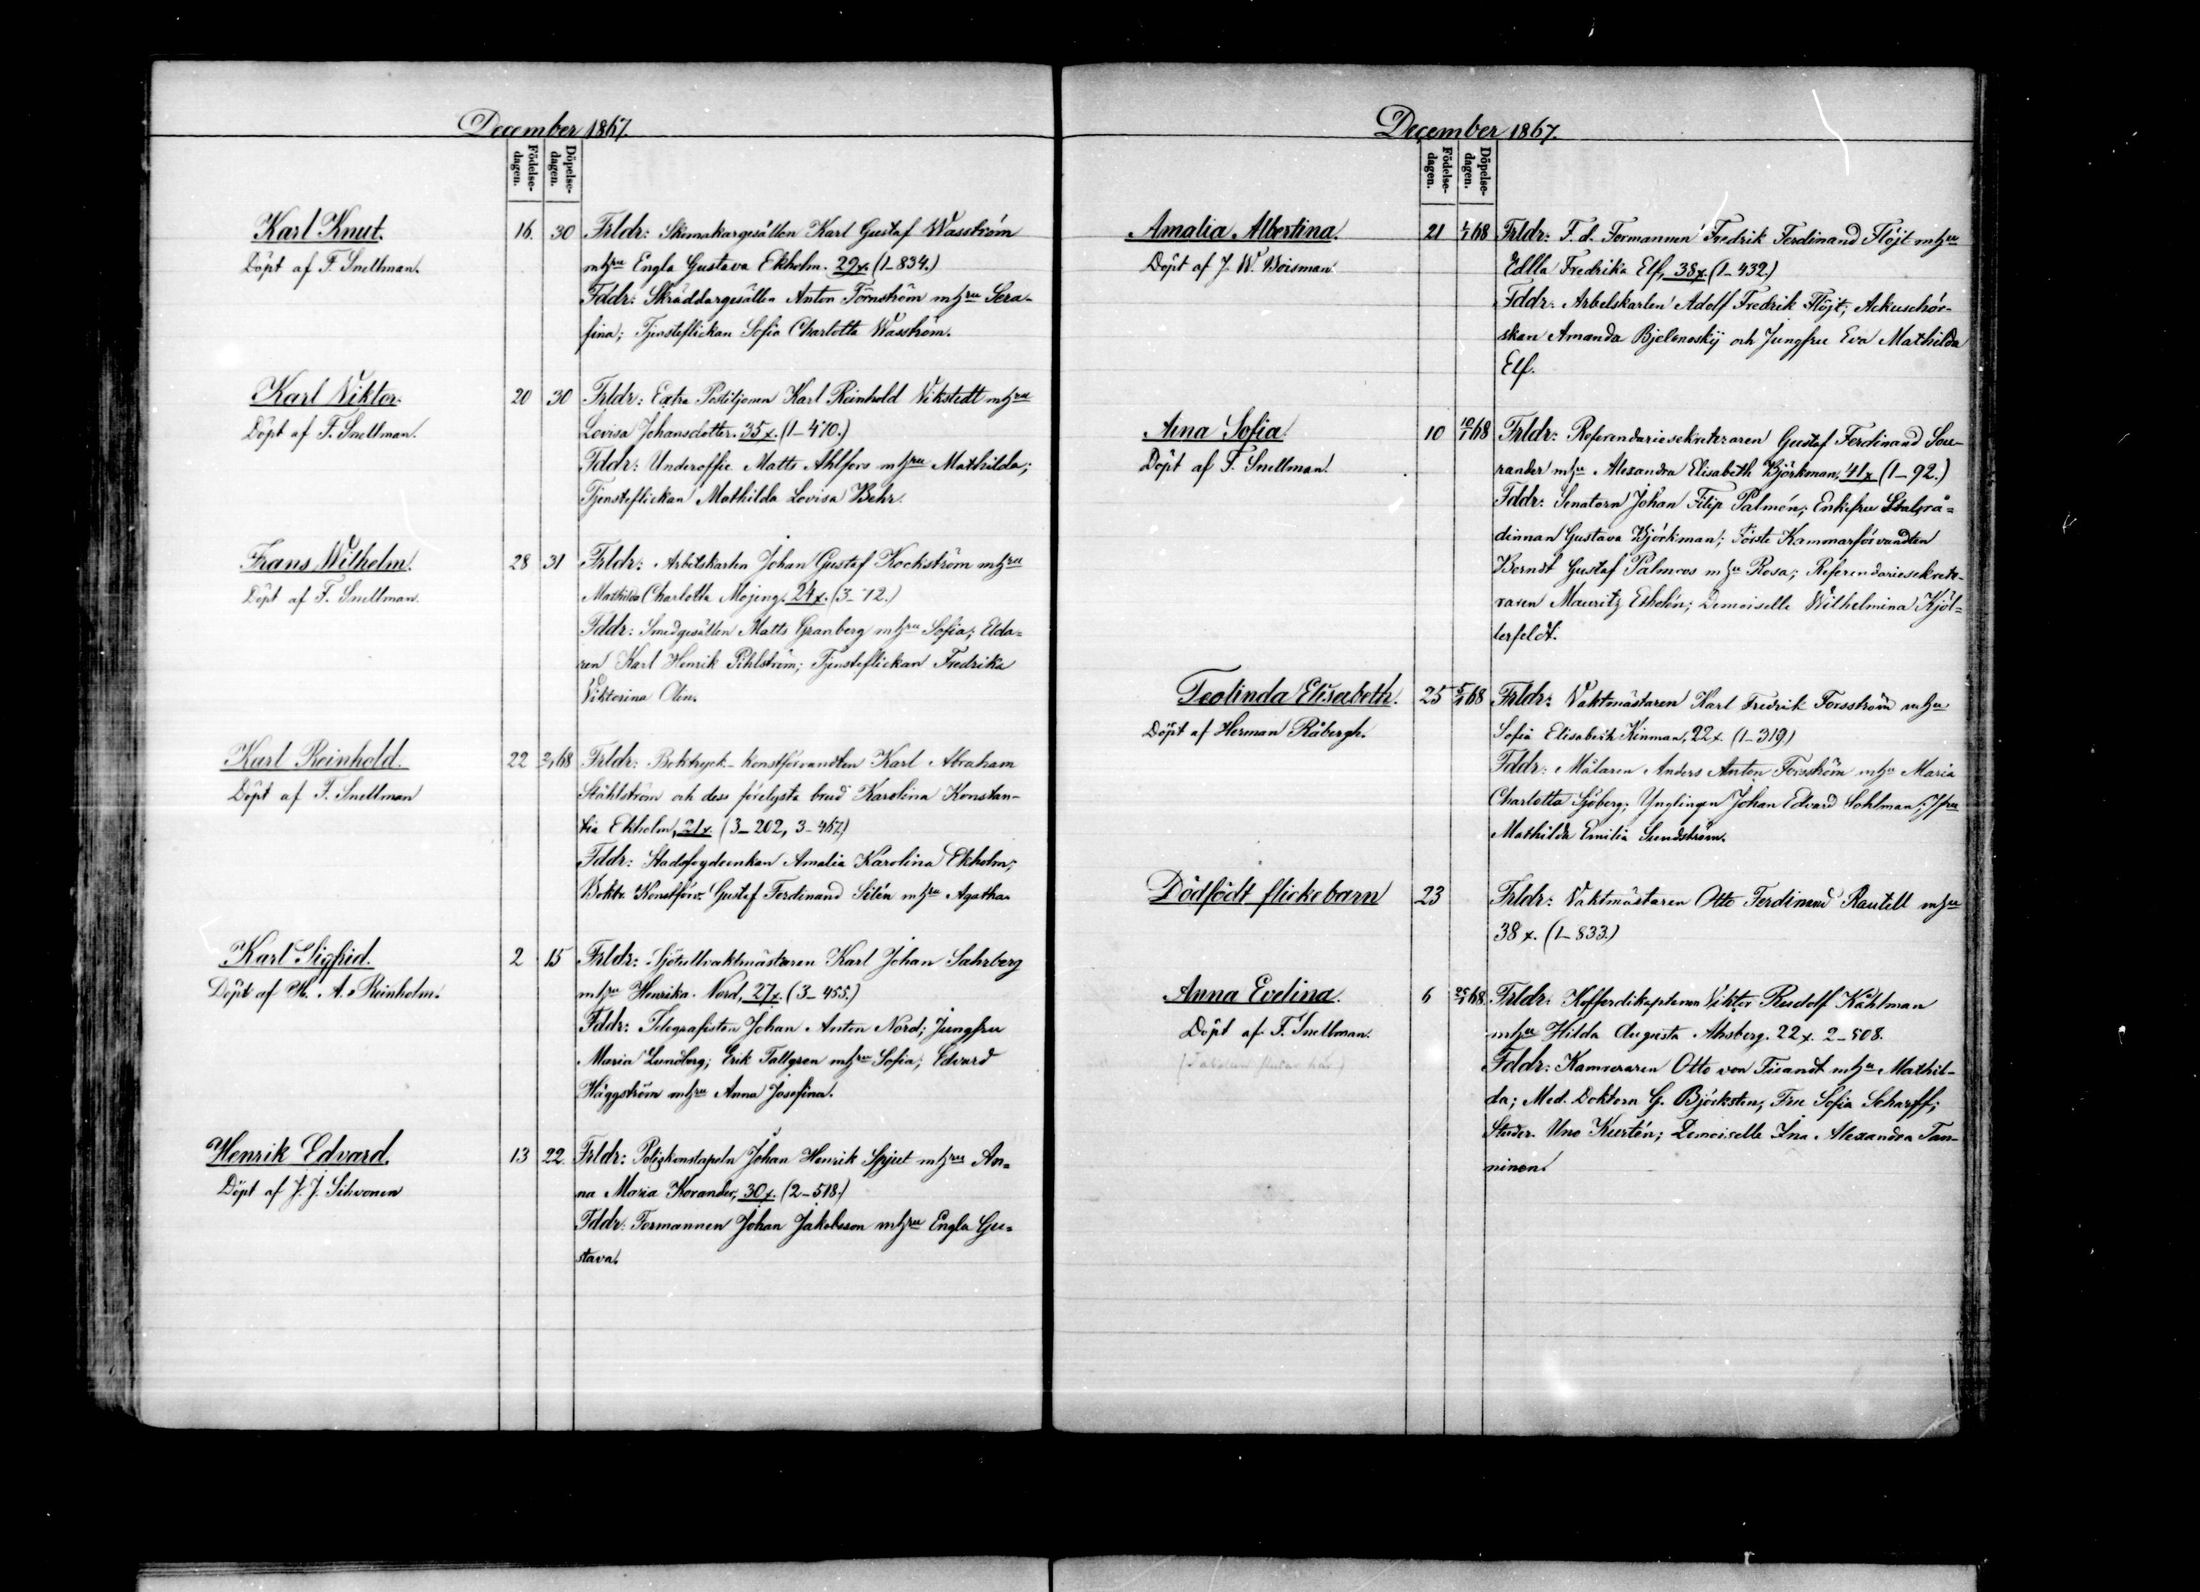 December 1867.
Födelse-
dagen.
Döpelse-
dagen.
Karl Knut.
Döpt af F. Snellman.
16. 30
Frldr: Skomakargesällen Karl Gustaf Wasström
mhru Engla Gustava Ekholm. 29 x. (1–834.)
Fddr: Skräddargesällen Anton Törnström mhru Sera-
fina; Tjensteflickan Sofia Charlotta Wasström.
Karl Viktor.
Döpt af F. Snellman.
20 30
Frldr: Extra Postiljonen Karl Reinhold Vikstedt mhru
Lovisa Johansdotter. 35 x. (1–470.)
Fddr: Underoffic. Matts Ahlfors mhru Mathilda;
Tjensteflickan Mathilda Lovisa Behr.
Frans Wilhelm.
Döpt af F. Snellman.
28 31
Frldr: Arbetskarlen Johan Gustaf Kockström mhru
Mathilda Charlotta Mojeng. 24 x. (3–12.)
Fddr: Smedgesällen Matts Granberg mhru Sofia; Elda-
ren Karl Henrik Pihlström; Tjensteflickan Fredrika
Viktorina Olin.
Karl Reinhold.
Döpt af F. Snellman
22 2/1 68
Frldr: Boktryck-konstförvandten Karl Abraham
Ståhlström och dess förelysta brud Karolina Konstan-
tia Ekholm, 21 x. (3–202, 3–467.)
Fddr: Stadsfogdeenkan Amalia Karolina Ekholm;
Boktr. Konstförv. Gustaf Ferdinand Silén mhru Agatha.
Karl Sigfrid.
Döpt af H. A. Reinholm.
2 15
Frldr: Sjötullvaktmästaren Karl Johan Sahrberg
mhru Henrika Nord, 27 x. (3–455.)
Fddr: Telegrafisten Johan Anton Nord; Jungfru
Maria Lundberg; Erik Tallgren mhru Sofia; Edvard
Häggström mhru Anna Josefina.
Henrik Edvard.
Döpt af J. J. Sihvonen
13 22
Frldr: Poliskonstapeln Johan Henrik Spjut mhru An-
na Maria Korander, 30 x. (2–518.)
Fddr: Formannen Johan Jakobsson mhru Engla Gu-
stava.
December 1867.
Födelse-
dagen.
Döpelse-
dagen.
Amalia Albertina.
Döpt af J. W. Woisman.
21 1/1 68
Frldr: F. d. Formannen Fredrik Ferdinand Flöjt mhru
Edlla Fredrika Elf, 38 x. (1–432.)
Fddr: Arbetskarlen Adolf Fredrik Flöjt; Ackuschör-
skan Amanda Bjelenoskij och Jungfru Eva Mathilda
Elf.
Aina Sofia.
Döpt af F. Snellman.
10 10/1 68
Frldr: Referendariesekreteraren Gustaf Ferdinand Sou-
rander mhru Alexandra Elisabeth Björkman, 41 x (1–92.)
Fddr: Senatorn Johan Filip Palmén; Enkefru Statsrå-
dinnan Gustava Björkman; Förste Kammarförvandten
Berndt Gustaf Palmroos mhru Rosa; Referendariesekrete-
raren Mauritz Etholén; Demoiselle Wilhelmina Kjöl-
terfeldt.
Teolinda Elisabeth.
Döpt af Herman Råbergh.
25 5/1 68
Frldr: Vaktmästaren Karl Fredrik Forsström mhru
Sofia Elisabeth Kinman, 22 x. (1–319)
Fddr: Målaren Anders Anton Forsström mhru Maria
Charlotta Sjöberg; Ynglingen Johan Edvard Sohlman; Jfru
Mathilda Emilia Sundström.
Dödfödt flickebarn
23
Frldr: Vaktmästaren Otto Ferdinand Rautell mhru
38 x. (1–833.)
Anna Evelina.
Döpt af F. Snellman.
6 25/1 68
Frldr: Kofferdikaptenen Viktor Rudolf Kåhlman
mhru Hilda Augusta Ahsberg. 22 x. 2–508.
Fddr: Kamreraren Otto von Fieandt mhru Mathil-
da; Med. Doktorn G. Björksten, Fru Sofia Scharff;
Studer. Uno Kurtén; Demoiselle Ina Alexandra Tan-
ninen.